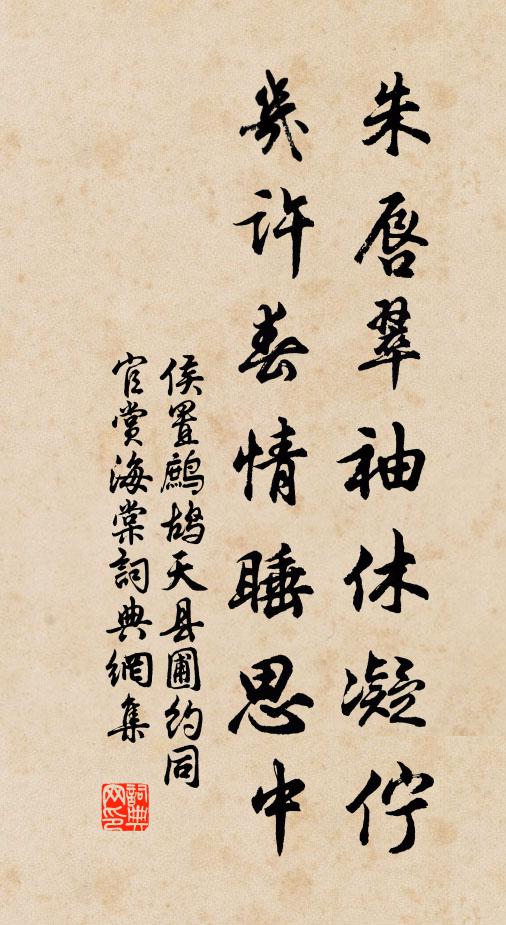 朱唇翠袖休凝伫
几许春情睡思中
侯置鹧鸪天县圃约同
官赏海棠詞典網集
詞典
网印